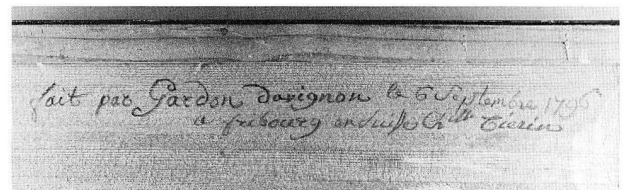 fait par Gardon Davignon le 6 Septembre 1796
a fribourg en Suisse Ch^lle Tierin